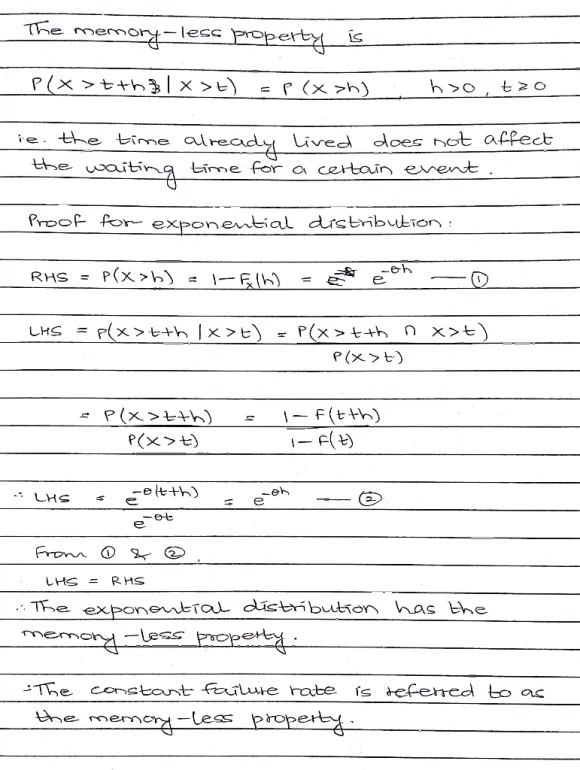 The memory-less property is
P(X > t+h | X > t) = P(X > h) , h > 0 , t ≥ 0
i.e. the time already lived does not affect
the waiting time for a certain event.
Proof for exponential distribution:
RHS = P(X > h) = 1 - Fx(h) = e^{-θh} — ①
LHS = P(X > t+h | X > t) = P(X > t+h ∩ X > t)
P(X > t)
= P(X > t+h) = 1 - F(t+h)
P(X > t) 1 - F(t)
∴ LHS = e^{-θ(t+h)} = e^{-θh} — ②
e^{-θt}
From ① & ②,
LHS = RHS
∴ The exponential distribution has the
memory-less property.
∴ The constant failure rate is referred to as
the memory-less property.